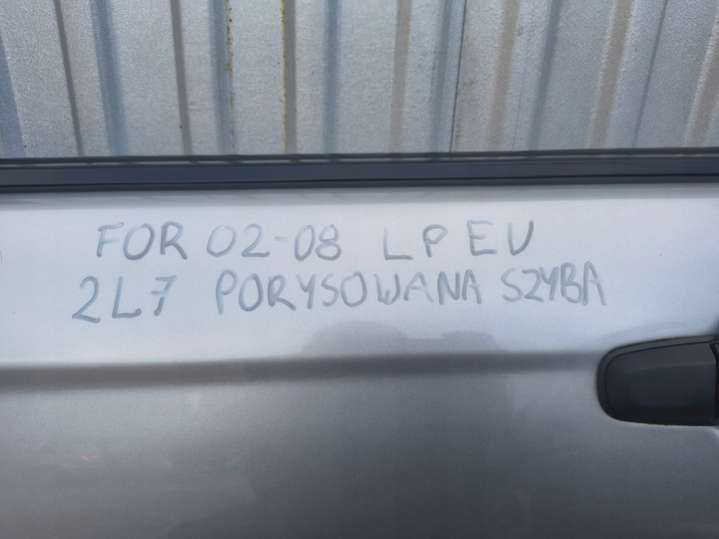 FOR 02-08 LP EU
2L7 PORYSOWANA SZYBA